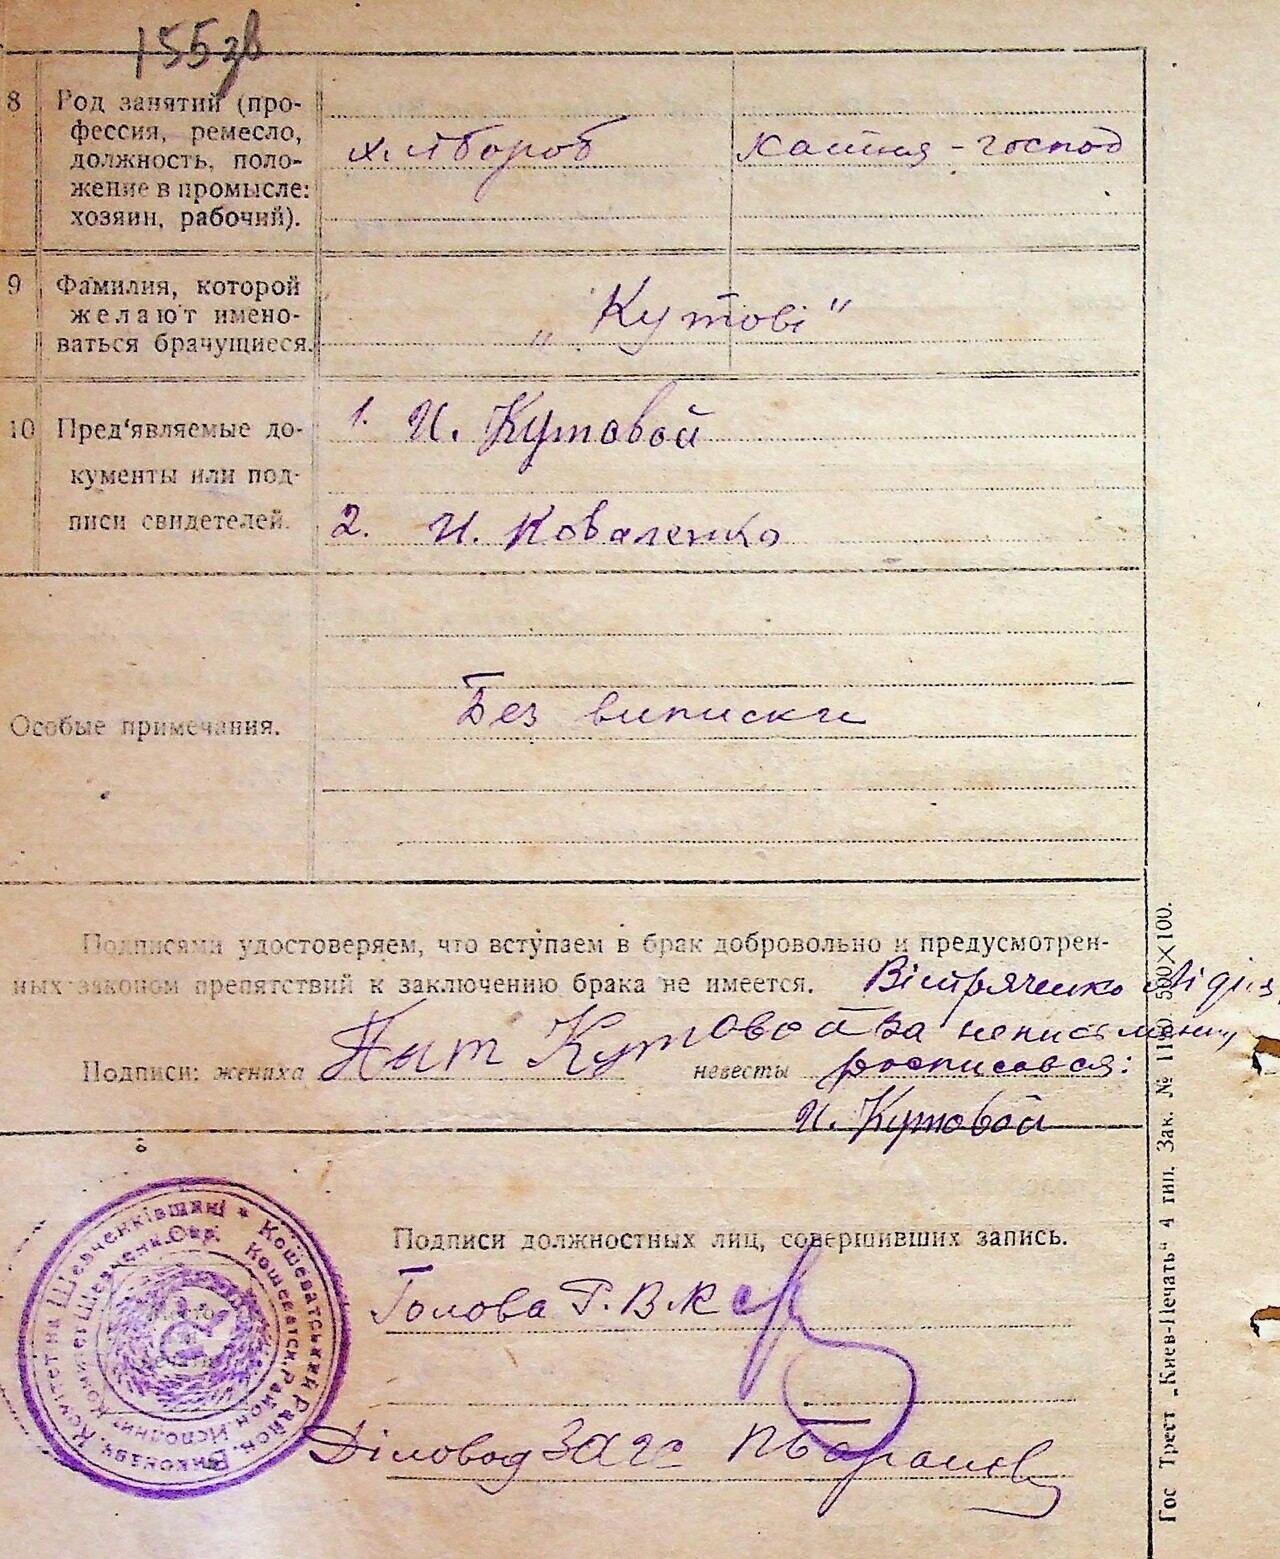 155зв
8 Род занятий (про-
фессия, ремесло,
должность, поло-
жение в промысле:
хозяин, рабочий).
хлібороб
хатня - господ
9 Фамилия, которой
желают имено-
ваться брачущиеся.
„Кутові"
10 Пред'являемые до-
кументы или под-
писи свидетелей.
1. И. Кутовой
2. И. Коваленко
Особые примечания.
Без виписки
Подписями удостоверяем, что вступаем в брак добровольно и предусмотрен-
ных законом препятствий к заключению брака не имеется.
Вітряченко Лідія
за неписьменну
Подписи: жениха
Кутовой
невесты
росписався:
И. Кутовой
Подписи должностных лиц, совершивших запись.
Голова Р.В.К
Діловод ЗАГС
Кошеватський Район. Виконавч. Комітет на Шевченківщині *
Кошеватск. Район. Исполнит. Комитет Шевченк. Окр.
Гос Трест „Киев-Печать" 4 тип. Зак. № 1190. 500×100.